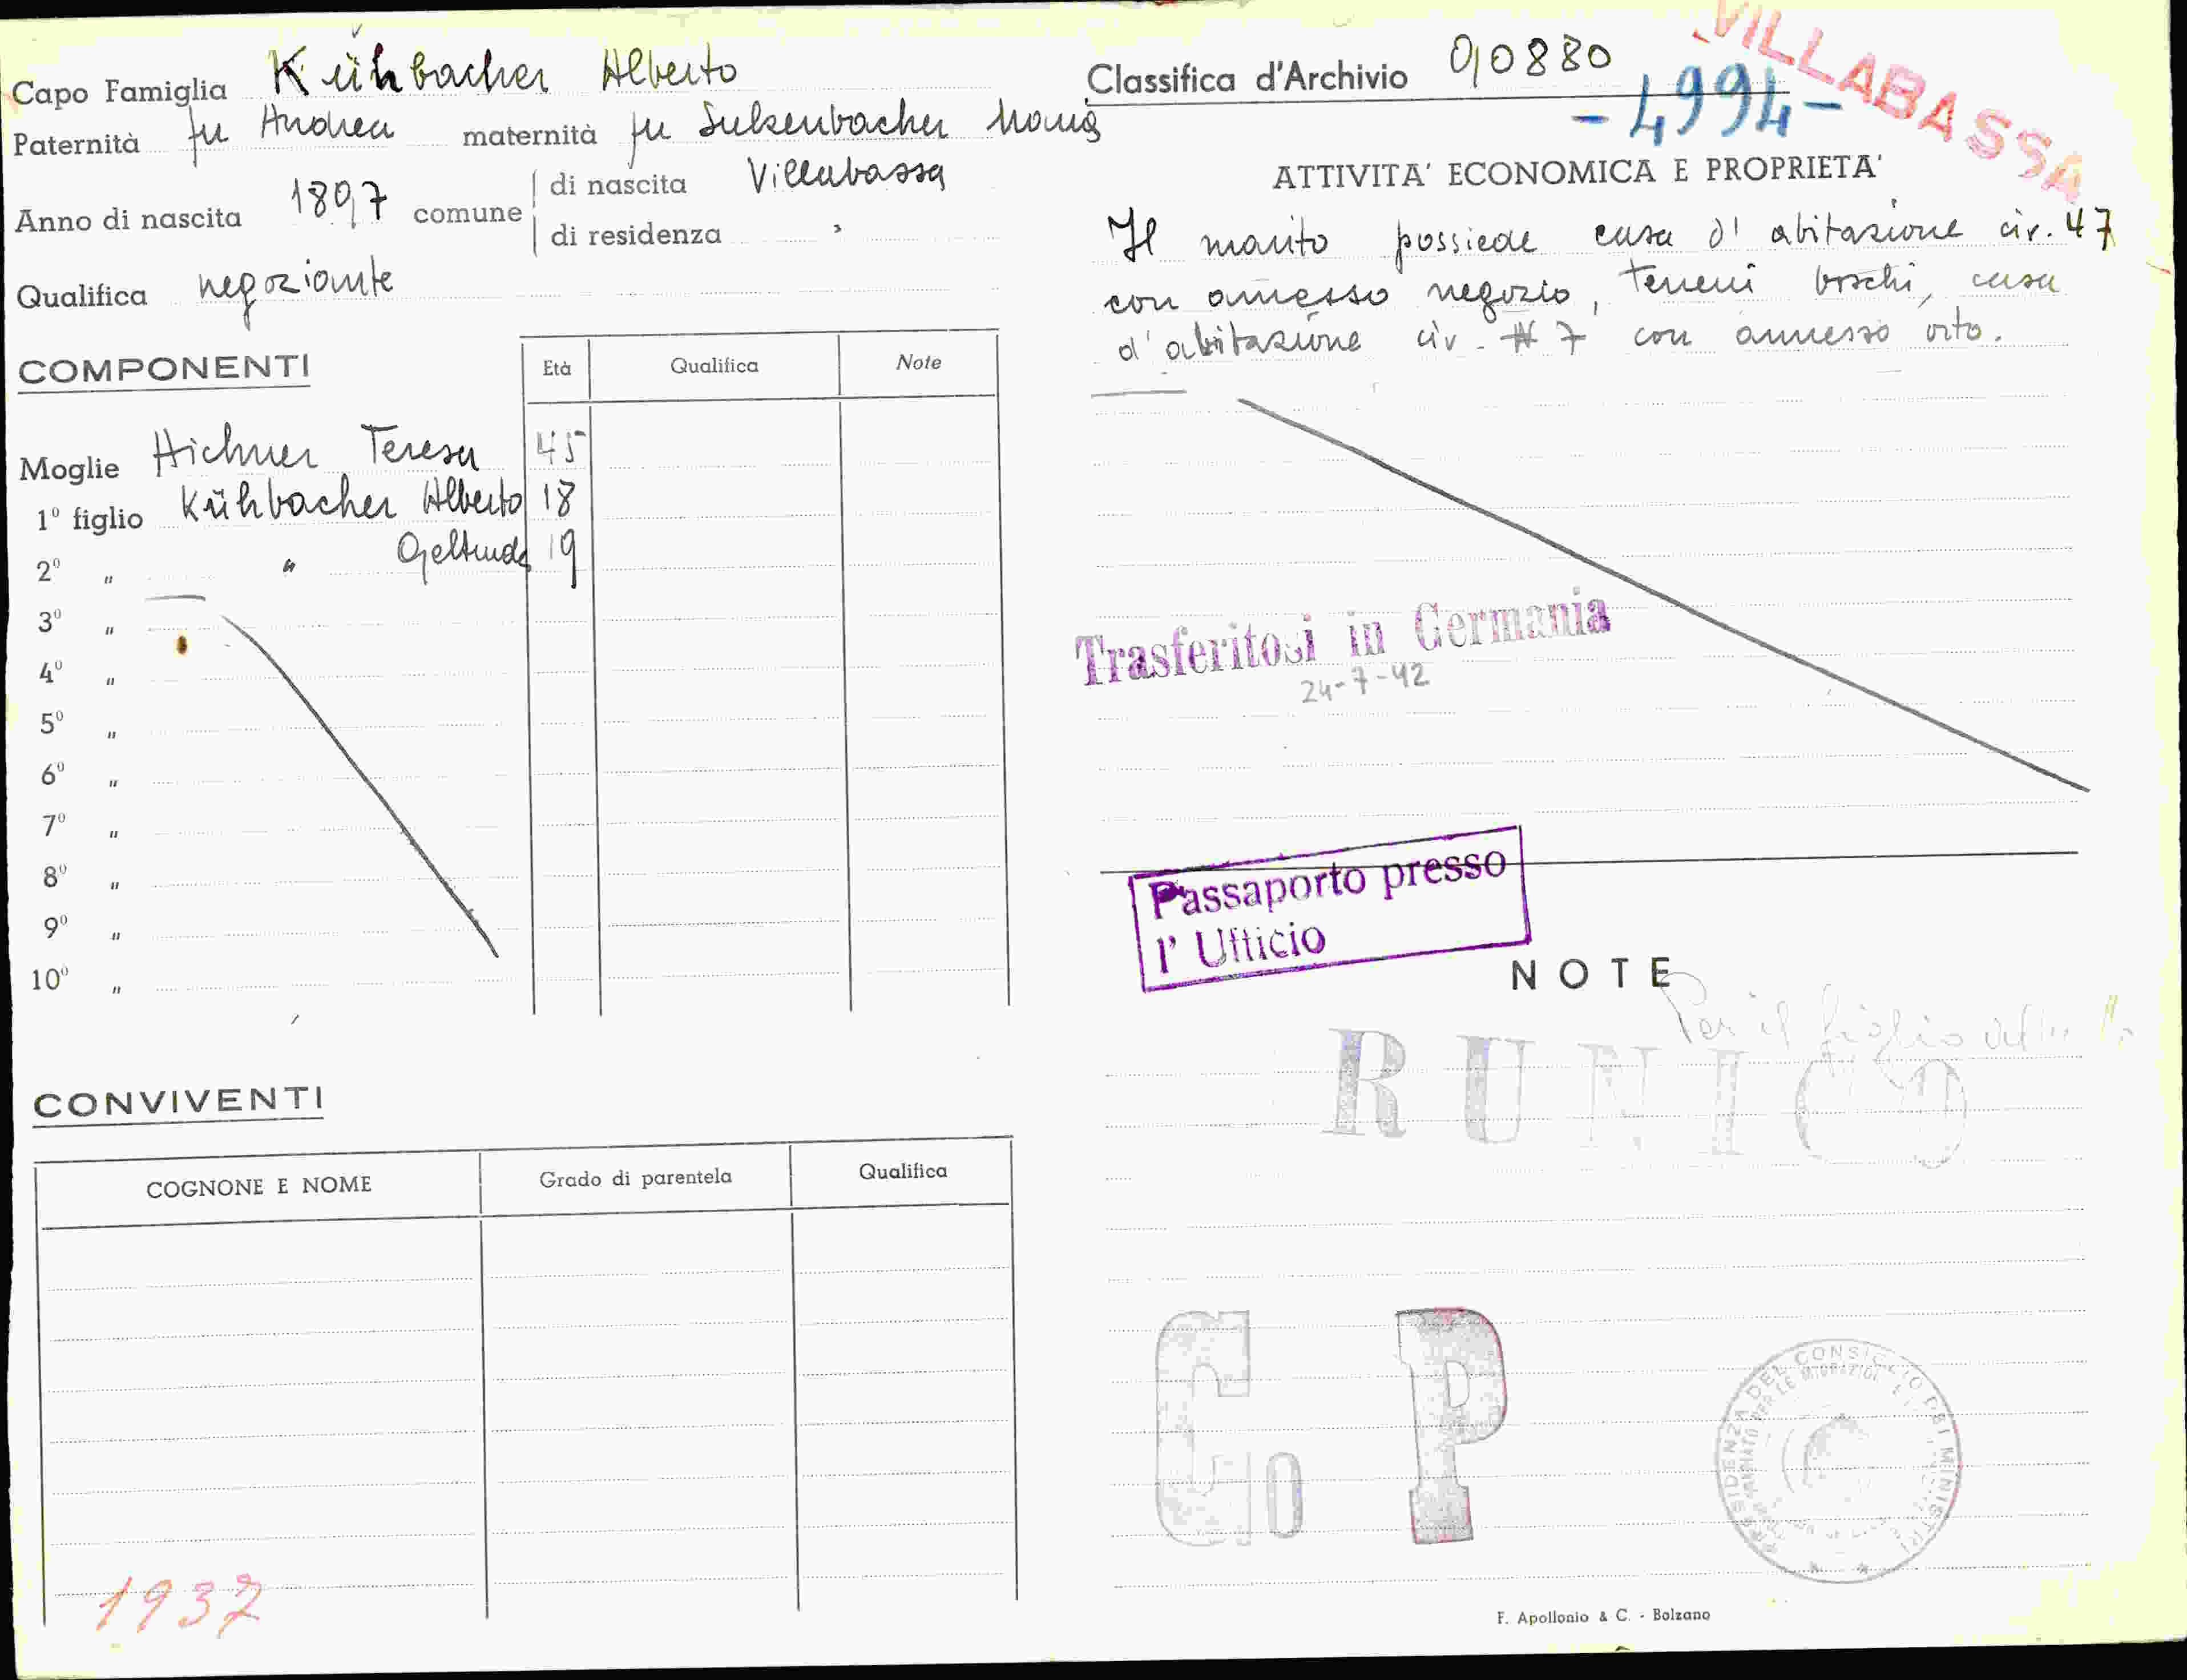 Capo Famiglia Kühbacher Alberto
Paternità fu Andrea maternità fu Sulzenbacher Maria
Anno di nascita 1897 comune di nascita Villabassa
di residenza "
Qualifica negoziante
COMPONENTI
Età Qualifica Note
Moglie Aichner Teresa 45
1° figlio Kühbacher Alberto 18
2° " " Geltrude 19
3° "
4° "
5° "
6° "
7° "
8° "
9° "
10° "
CONVIVENTI
COGNONE E NOME Grado di parentela Qualifica
1937
Classifica d'Archivio 90880
VILLABASSA
-4994-
ATTIVITA' ECONOMICA E PROPRIETA'
Il marito possiede casa d'abitazione civ. 47
con annesso negozio, terreni boschi, casa
d'abitazione civ. 7 con annesso orto.
Trasferitosi in Germania
24-7-42
Passaporto presso
l' Ufficio
NOTE
Per il figlio
RUNICO
G10 P
PRESIDENZA DEL CONSIGLIO DEI MINISTRI
F. Apollonio & C. - Bolzano